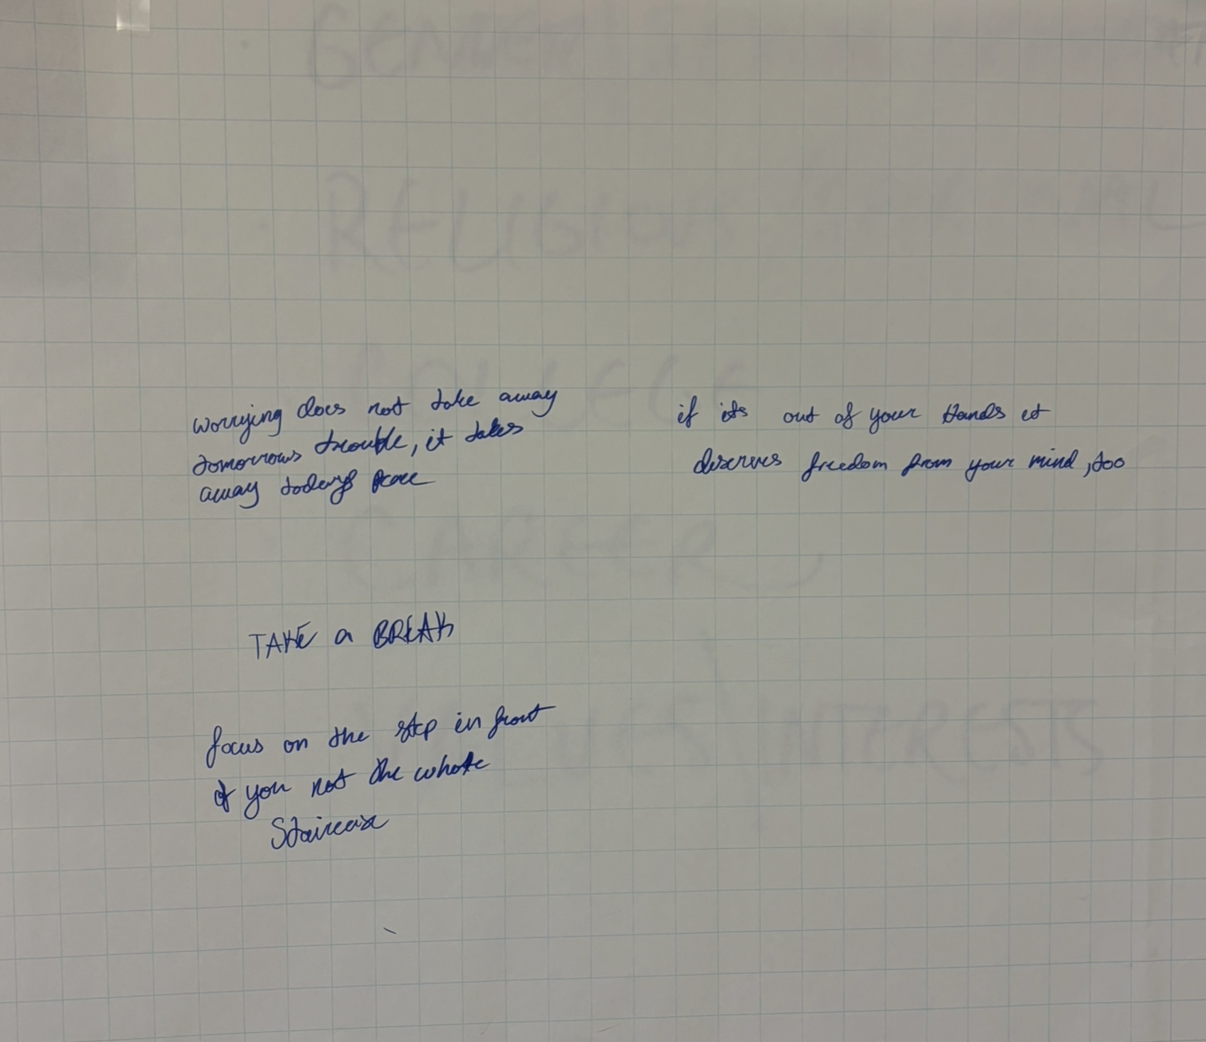 GENDER
RELIGION
COLLEGE
CAREER
INTERESTS
worrying does not take away
tomorrows trouble, it takes
away todays peace
if its out of your hands it
deserves freedom from your mind, too
TAKE a BREAK
focus on the step in front
of you not the whole
Staircase